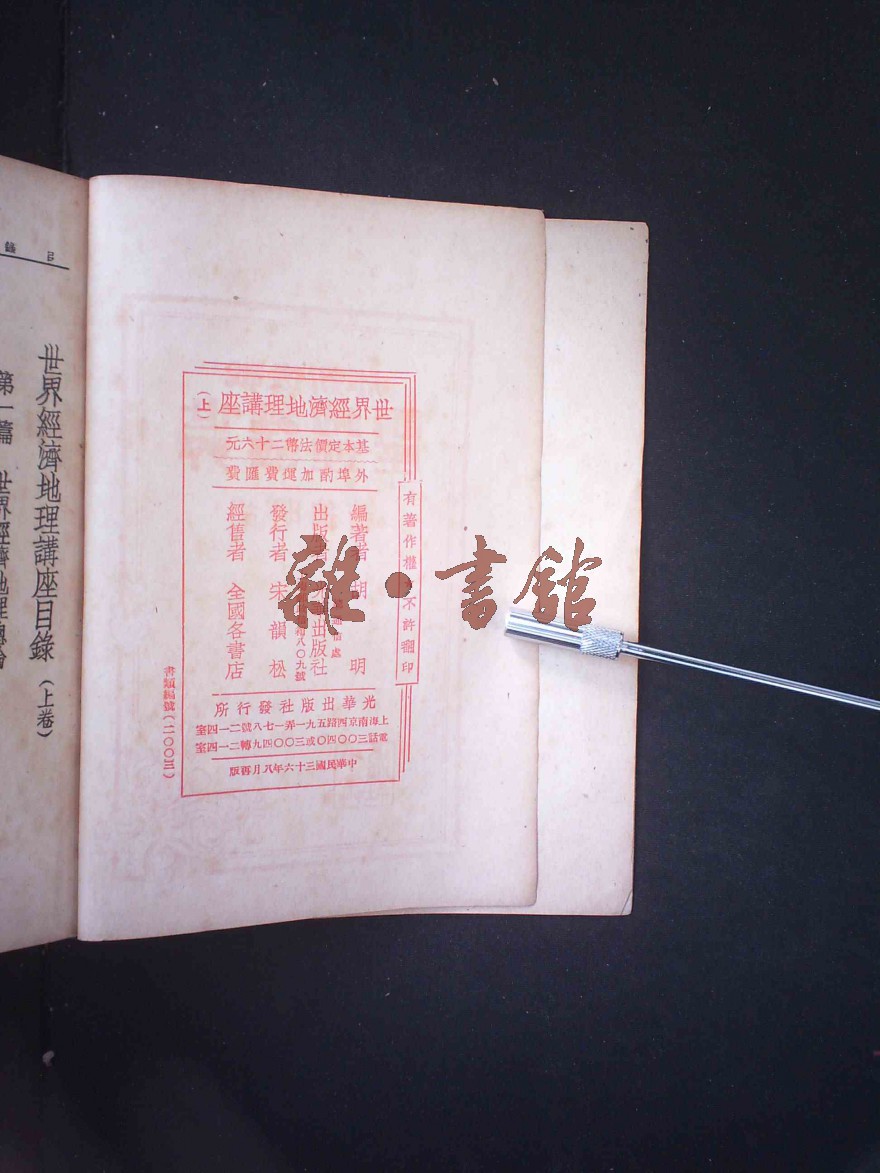 世界經濟地理講座（上）
基本定價法幣二十六元
外埠酌加運費匯費
有著作權 不許翻印
編著者 胡明
出版 出版社
八〇九號
發行者 宋韻松
經售者 全國各書店
光華出版社發行所
上海南京西路五九一弄一七八號二一四室
電話三〇〇四〇或三〇〇四九轉二一四室
中華民國三十六年八月再版
書類編號（二〇〇三）
目錄
世界經濟地理講座目錄（上卷）
第一篇 世界經濟地理總論
雜·書館